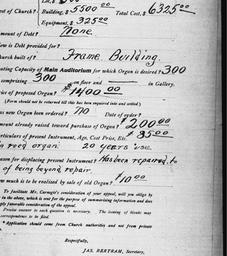 Lot, $
of Church? Building, $ 5500 00 Total Cost, $ 6325 00
Equipment, $ 325 00
mount of Debt? None.
ow is Debt provided for?
hurch built of? Frame Building
ting Capacity of Main Auditorium for which Organ is desired? 300
comprising 300 on floor and in Gallery.
rice of proposed Organ? $1400 00
(Form should not be returned till this has been inquired into and settled.)
as new Organ been ordered? no Date of order?
mount already raised toward purchase of Organ? $ 200 00
rticulars of present Instrument, Age, Cost Price, Etc. $ 35 00
n reed organ 20 years use.
eason for displacing present Instrument? Has been repaired to
of being beyond repair
ow much is to be realized by sale of old Organ? $10 00
To facilitate Mr. Carnegie's consideration of your appeal, will you oblige by
in the above, which is one for the purpose of summarising information and does
ply favorable consideration of the appeal.
Precise answer to each question is necessary. The issuing of blanks may
orrespondence to be filed.
* Application should come from Church authority and not from private
Respectfully,
JAS. BERTRAM, Secretary,